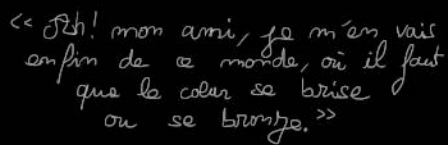 << Ah! mon ami, je m'en vais
enfin de ce monde, où il faut
que le cœur se brise
ou se bronze. >>